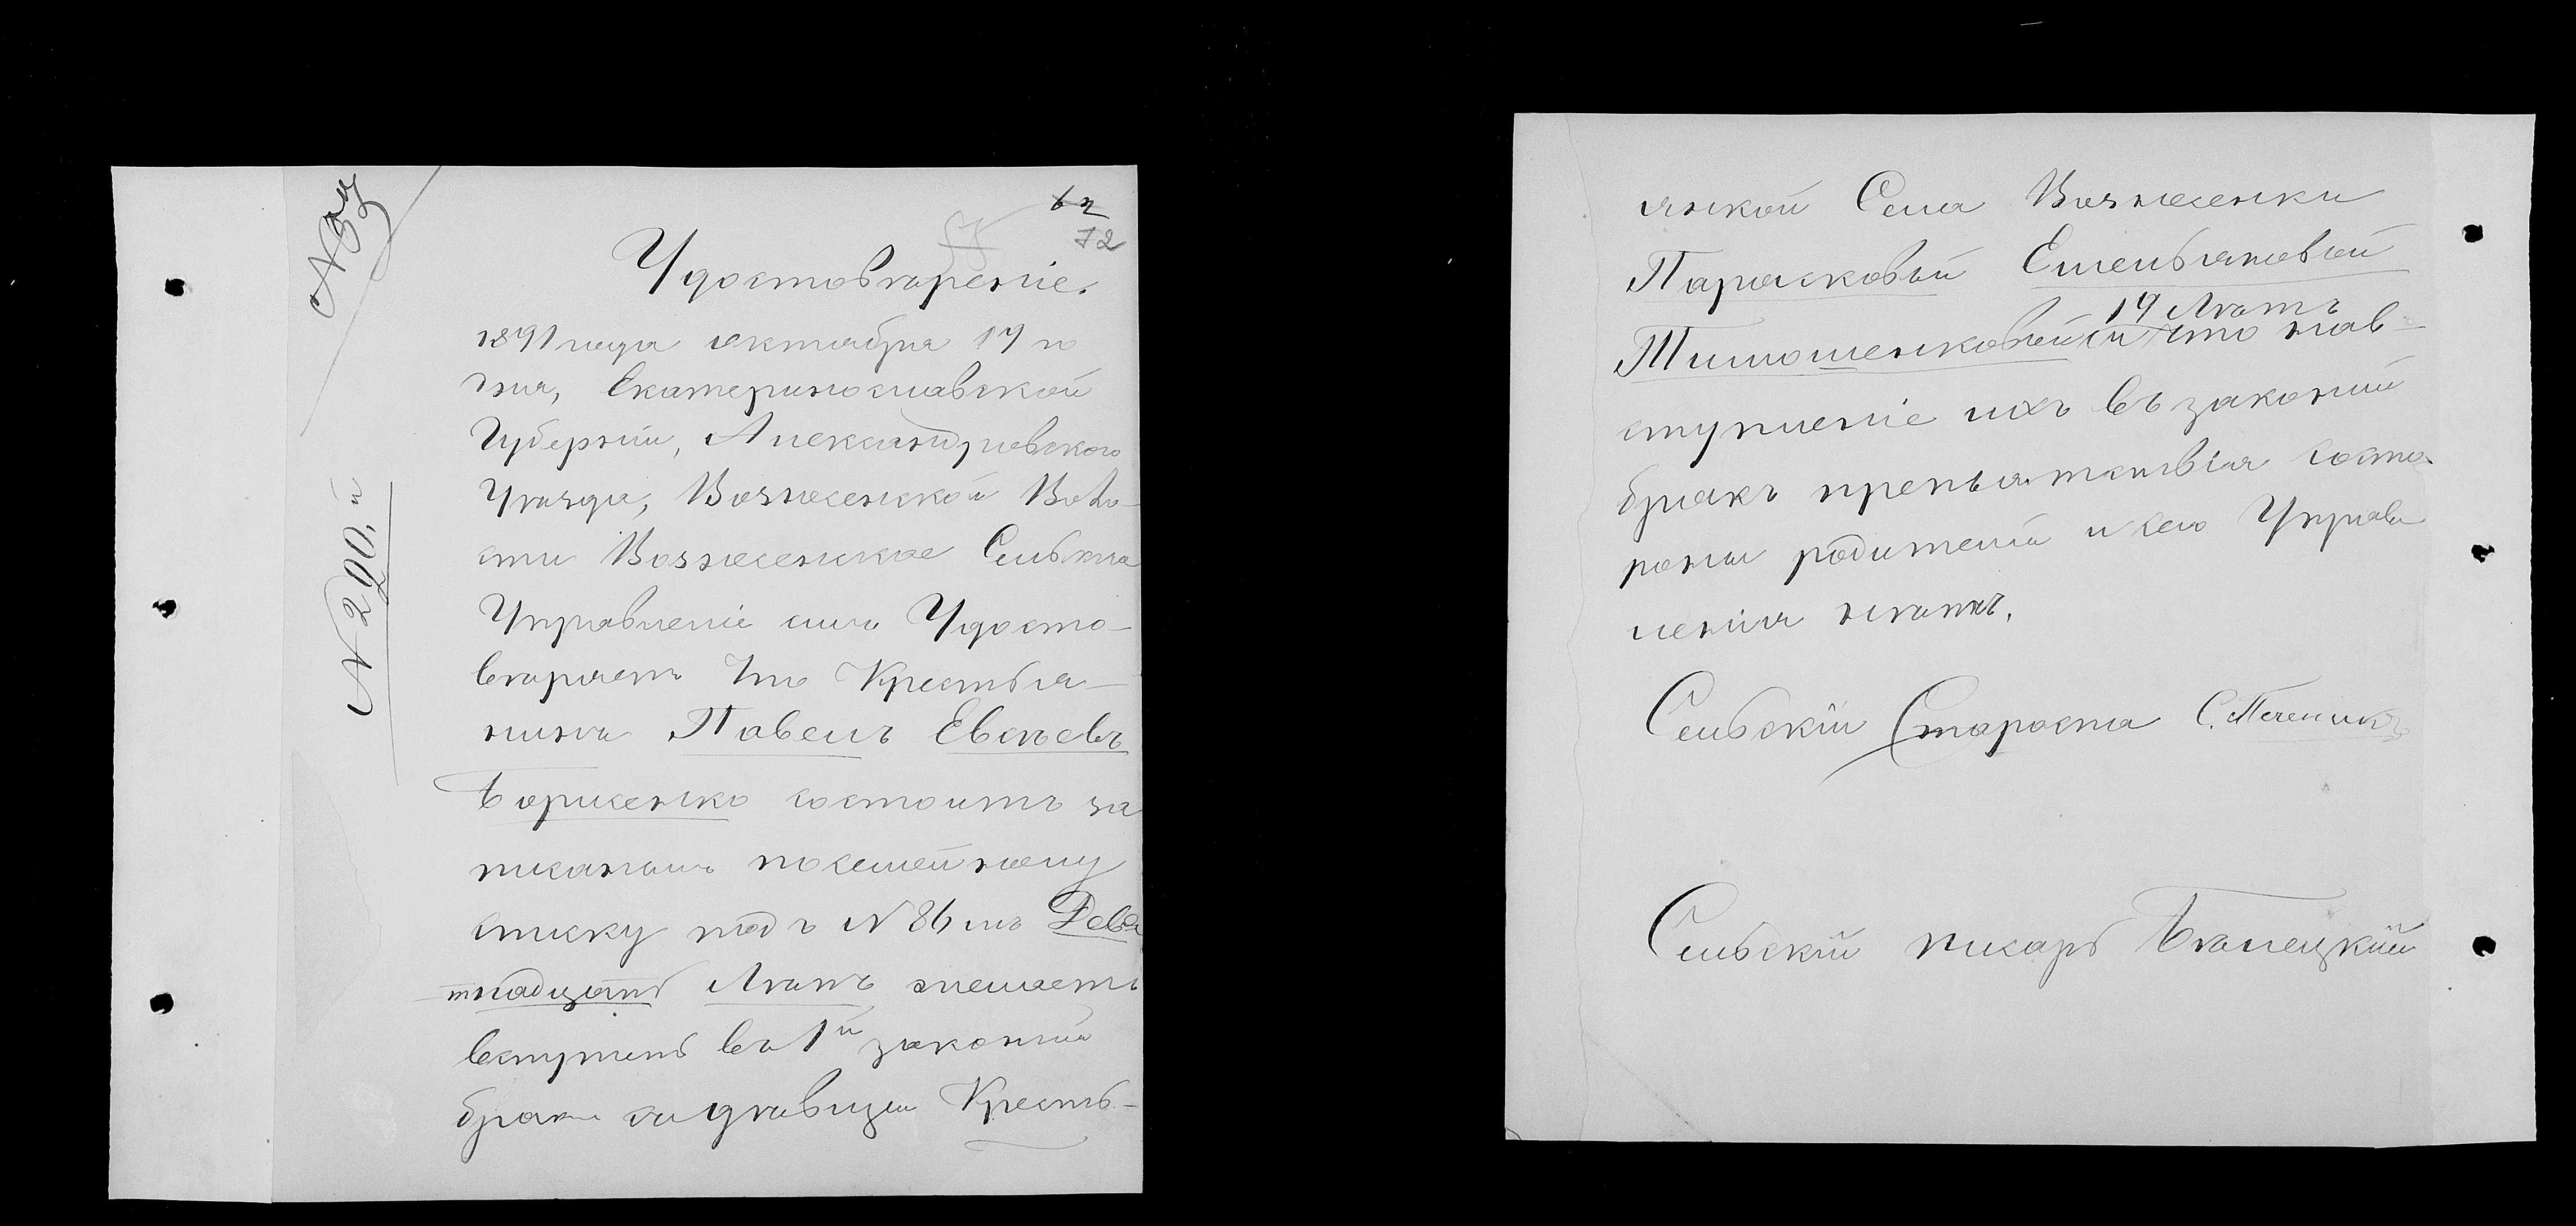 62
72
Удостовѣреніе.
1891 года октября 19 го
дня, Екатеринославской
Губерніи, Александровскаго
Уѣзда, Вознесенской Воло-
сти Вознесенское Сельское
Управленіе симъ Удосто-
вѣряетъ что Крестья-
нинъ Павелъ Евсѣевъ
Борисенко состоитъ за
писанымъ посемейному
списку подъ N 86 мъ Девя
тнадцать Лѣтъ желаетъ
вступить въ 1й законий
бракъ съ дѣвицей Кресть-
N 290.й
янкой Села Вознесенки
Парасковьей Емельяновой
19 Лѣтъ
Тимошенковой и что нав-
ступленіе ихъ въ законий
бракъ препьятствія состо
роны родителей и сего Управ
ленія нѣтъ.
Сельскій Староста С. Печеникъ
Сельскій писарь Бѣлецкій